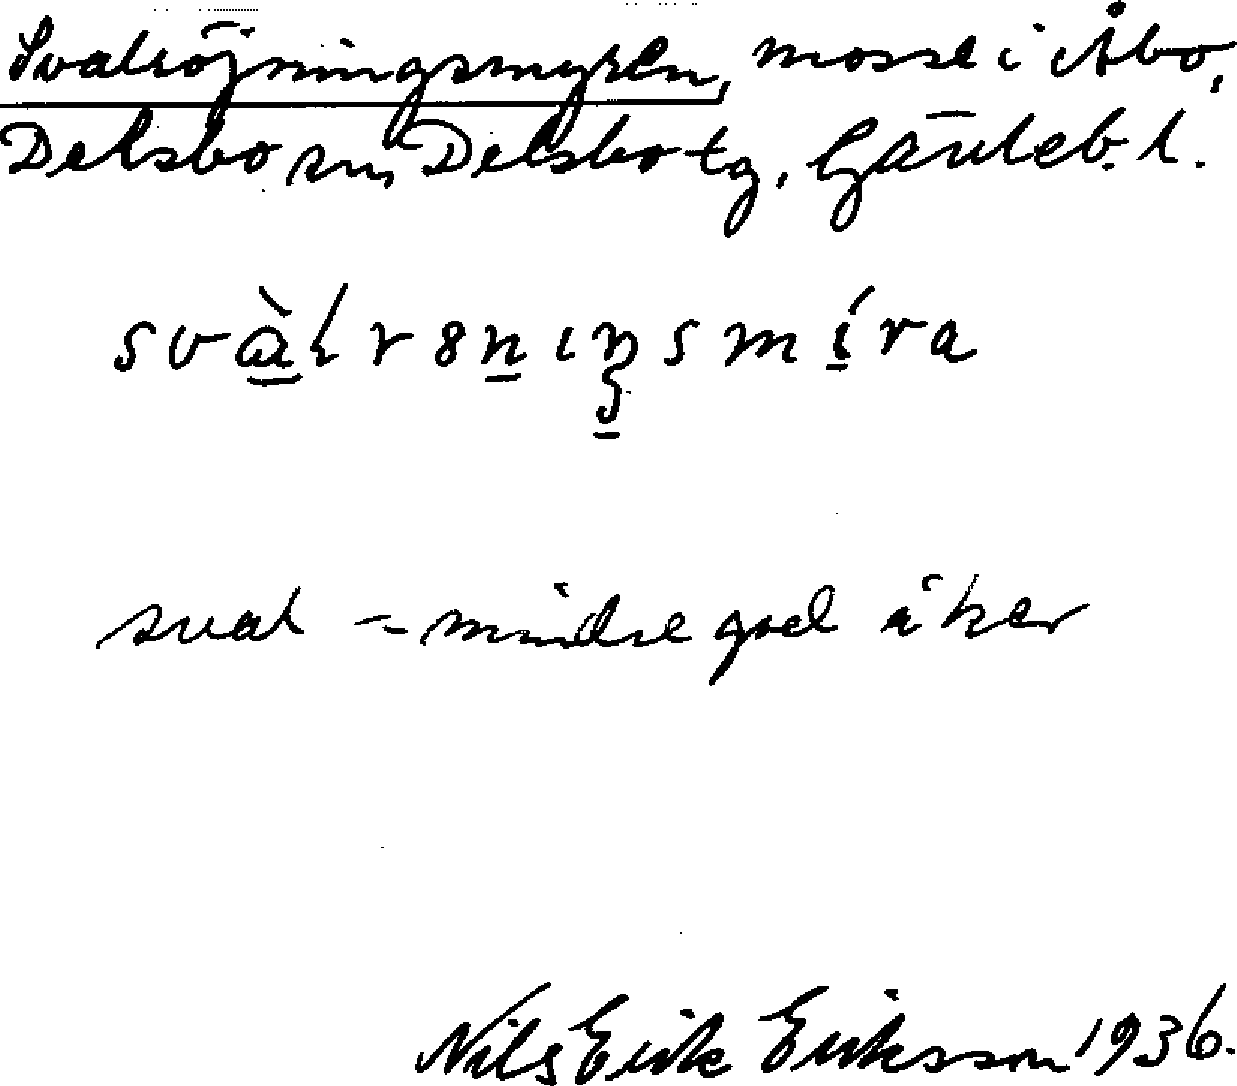 Svalröjningsmyren, mosse i Åbo,
Delsbo sn, Delsbo tg, Gävleb. l.
svalrönıŋsmira
sval = mindre god åker
Nils Erik Eriksson 1936.